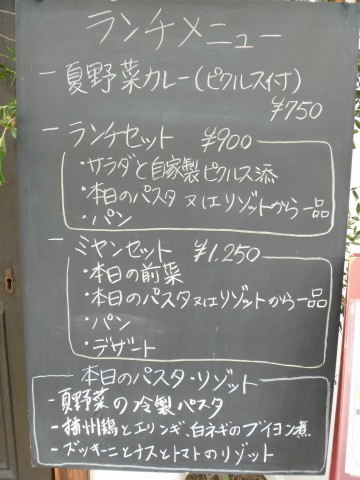 ランチメニュー
－夏野菜カレー(ピクルス付)
¥750
－ランチセット ¥900
・サラダと自家製ピクルス添
・本日のパスタ又はリゾットから一品
・パン
－ミヤンセット ¥1.250
・本日の前菜
・本日のパスタ又はリゾットから一品
・パン
・デザート
本日のパスタ・リゾット
－夏野菜の冷製パスタ
－播州鶏とエリンギ、白ネギのブイヨン煮
－ズッキーニとナスとトマトのリゾット